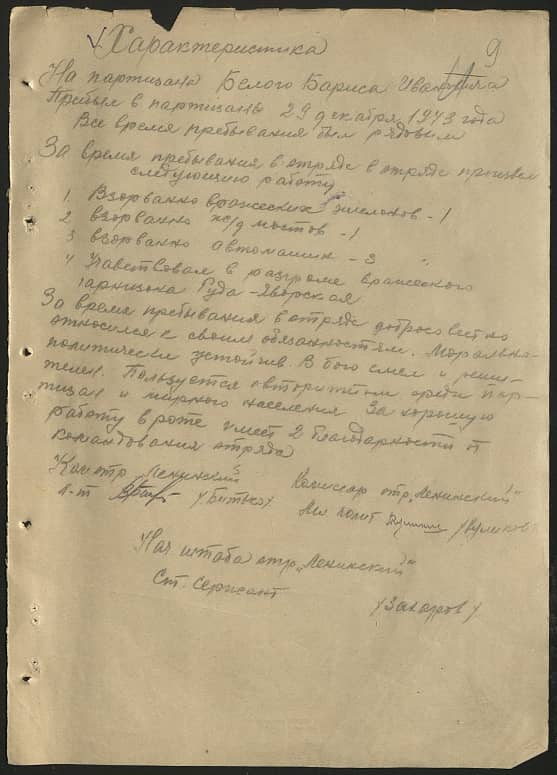 9
Характеристика
На партизана Белого Бариса Ивановича
Прибыл в партизаны 29 декабря 1943 года
Все время пребывания был рядовым
За время пребывания в отряде в отряде произвел
следующию работу
1. Взорванно вражеских эшелонов - 1
2 взорванно ж/д мостов - 1
3 взорванно автомашин - 3 "
4 Учавствовал в разгроме вражеского
гарнизона Руда-Яворская.
За время пребывания в отряде добросовестно
относился к своим обязанностям. Морально-
политически устойчив. В бою смел и реши-
телен. Пользуется авторитетом среди пар-
тизан и мирного населения За хорошую
работу в роте имеет 2 благодарности от
командования отряда
Ком отр "Ленинский" Комиссар отр. "Ленинский"
л-т /Битько/ Мл полит
Нач штаба отр "Ленинский"
Ст. Сержант /Захаров/